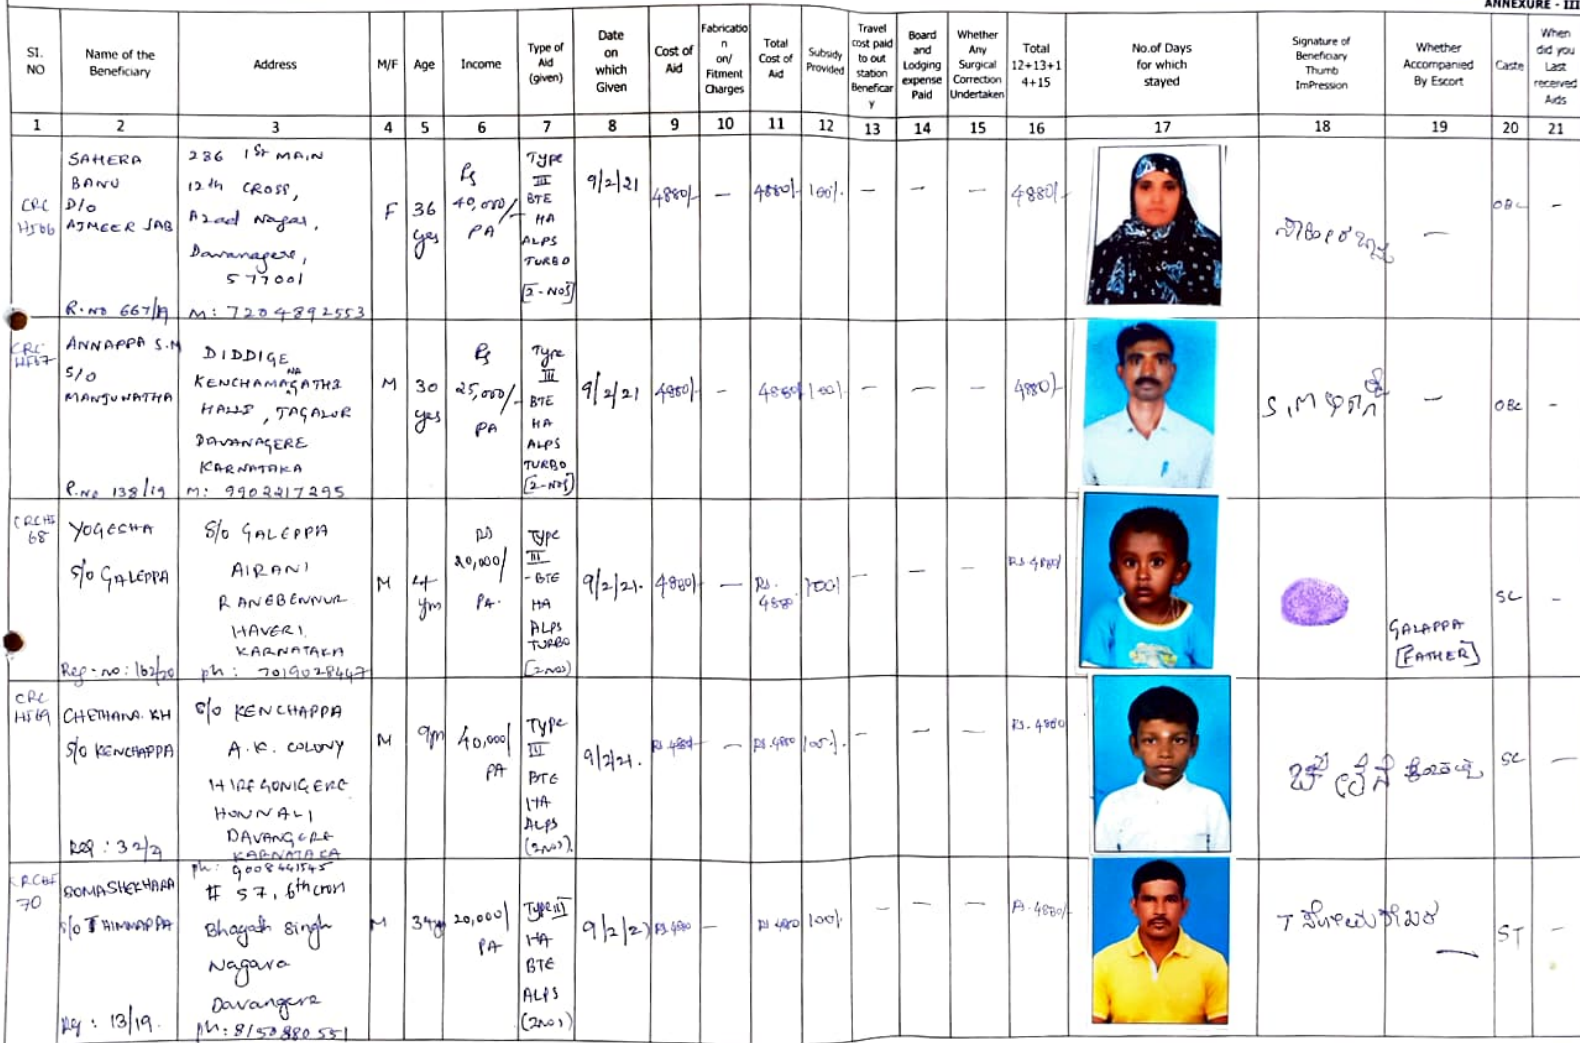 ANNEXURE - III
SI. NO
Name of the Beneficiary
Address
M/F
Age
Income
Type of Aid (given)
Date on which Given
Cost of Aid
Fabricatio n on/ Fitment Charges
Total Cost of Aid
Subsidy Provided
Travel cost paid to out station Beneficar y
Board and Lodging expense Paid
Whether Any Surgical Correction Undertaken
Total 12+13+1 4+15
No.of Days for which stayed
Signature of Beneficiary Thumb ImPression
Whether Accompanied By Escort
Caste
When did you Last received Aids
1 2 3 4 5 6 7 8 9 10 11 12 13 14 15 16 17 18 19 20 21
SAHERA
BANU
D/O
AJMEER SAB
R.NO 667/19
236 1st MAIN
12th CROSS,
Azad Nagar,
Davanagere,
577001
M: 7204892553
F
36
yes
Rs
40,000/-
PA
TYPE
III
BTE
HA
ALPS
TURBO
[2-NOS]
9/2/21
4880/-
—
4880/-
100%
—
—
—
4880/-
—
OBC
-
ANNAPPA S.M
S/O
MANJUNATHA
R.No 138/19
DIDDIGE
HALLI, TAGALUR
DAVANAGERE
KARNATAKA
M: 9902217295
M
30
yes
Rs
25,000/-
PA
Type
III
BTE
HA
ALPS
TURBO
[2-NOS]
9/2/21
4880/-
-
4880/-
100%
—
—
—
4880/-
—
OBC
-
CRCHI
68
YOGESHA
S/o GALEPPA
Reg-no: 162/20
S/o GALEPPA
AIRANI
RANEBENNUR
HAVERI,
KARNATAKA
ph: 7019028447
M
4
Rs
20,000/
PA.
Type
III
-BTE
HA
ALPS
TURBO
(2NOS)
9/2/21.
4880/-
—
Rs.
4880
100%
—
—
—
Rs 4880/
GALAPPA
[FATHER]
SC
-
CHETHANA. KH
S/o KENCHAPPA
S/o KENCHAPPA
A.K. COLONY
HIREGONIGERE
HONNALI
DAVANGERE
KARNATAKA
ph: 9008441545
M
40,000/
PA
TYPE
III
BTE
HA
ALPS
(2NOS).
9/2/21.
Rs 4880
—
Rs. 4880
100%.
—
—
—
Rs. 4880
SC
—
70
SOMASHEKHARA
S/o THIMMAPPA
Reg: 13/19.
# 57, 6th cross
Bhagath Singh
Nagara
Davangere
ph: 8150880551
M
34
20,000/
PA
TYPE III
HA
BTE
ALPS
(2NOS)
9/2/21
Rs 4880
—
Rs 4880
100%
—
—
—
4880/-
T ಸೋಮಶೇಖರ
—
ST
-